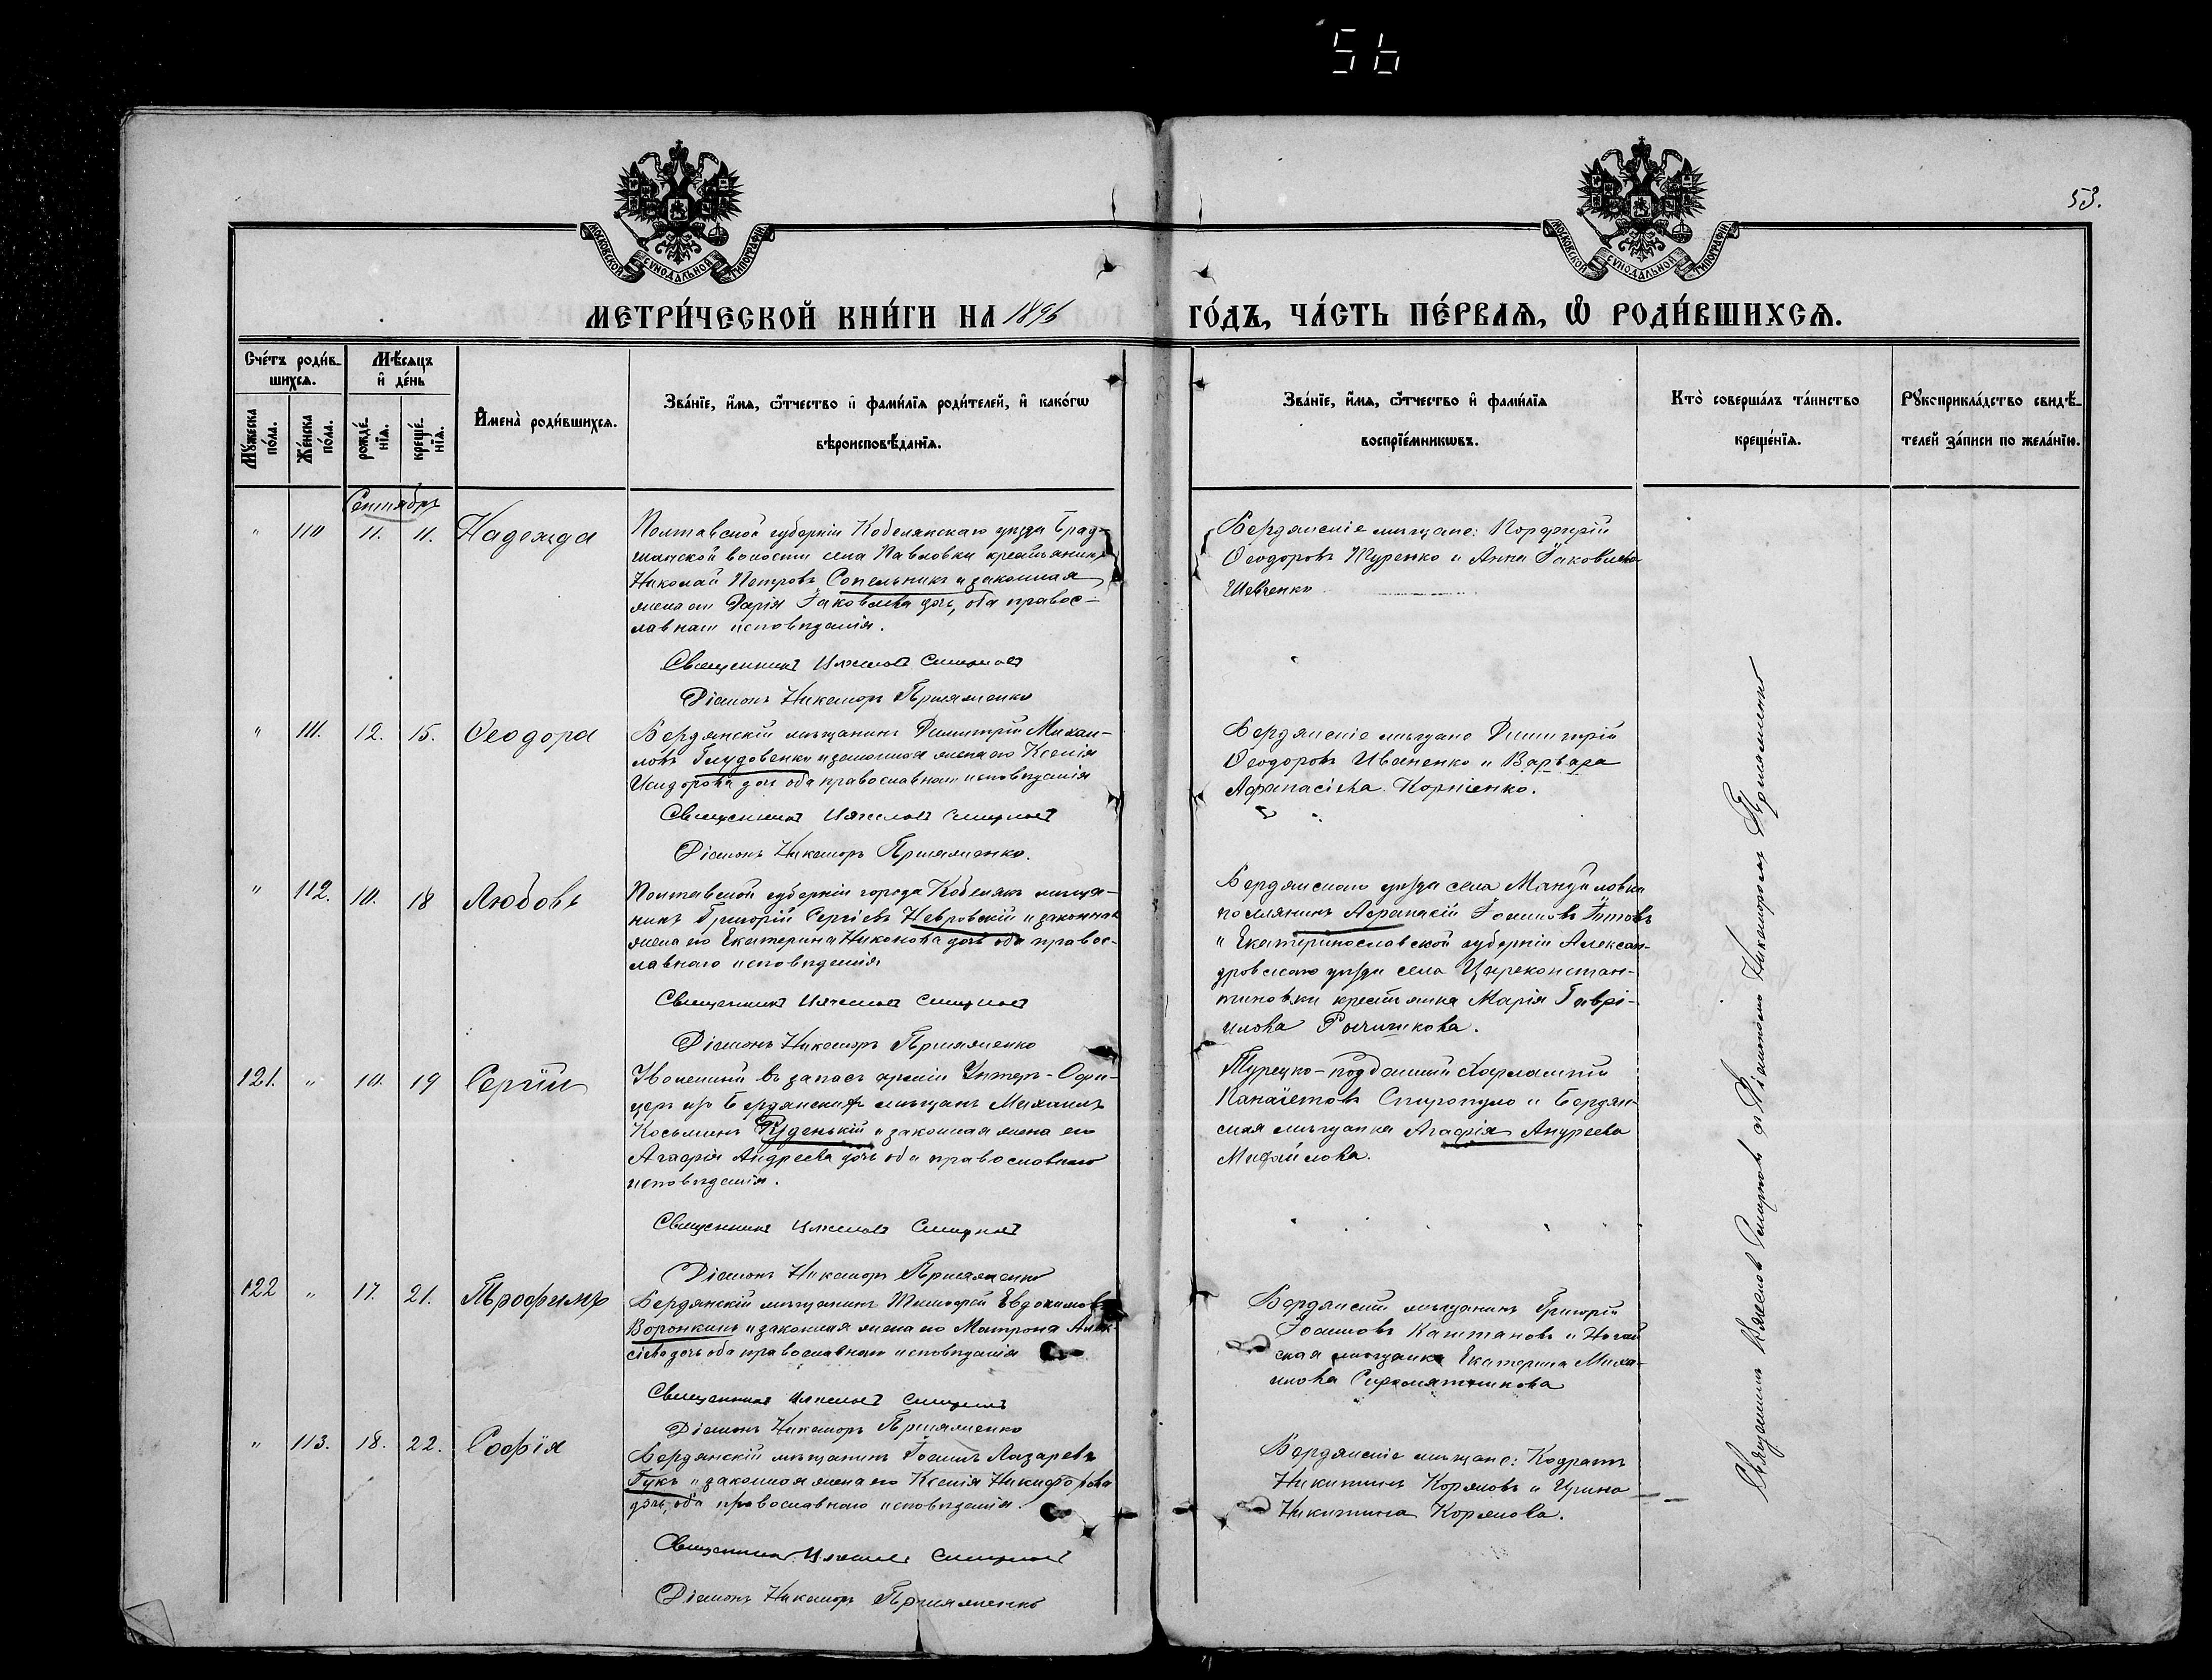 56
53.
МОСКОВСКОЙ СѴНОДАЛЬНОЙ ТИПОГРАФІИ
МОСКОВСКОЙ СѴНОДАЛЬНОЙ ТИПОГРАФІИ
МЕТРИ́ЧЕСКОЙ КНИ́ГИ НА 1896
ГО́ДЪ, ЧА́СТЬ ПЕ́РВАѦ, Ѡ҆ РОДИ́ВШИХСѦ.
Сче́тъ роди́в-
шихсѧ.
Мѣ́сѧцъ
и҆ де́нь
Мꙋ́жеска
по́ла.
Же́нска
по́ла.
рожде́-
нїѧ.
креще́-
нїѧ.
И҆мена̀ роди́вшихсѧ.
Зва́нїе, и҆́мѧ, ѻ҆́тчество и҆ фами́лїѧ роди́телей, и҆ како́гѡ
вѣроисповѣ́данїѧ.
Зва́нїе, и҆́мѧ, ѻ҆́тчество и҆ фами́лїѧ
воспрїе́мникѡвъ.
Кто̀ соверша́лъ та́инство
креще́нїѧ.
Рꙋкоприкла́дство свидѣ́-
телей за́писи по жела́нїю.
Сентябрь
" 110 11. 11. Надежда
Полтавской губерніи Кобелякскаго уѣзда
волости села Павловки крестьянинъ
Николай Петровъ Сопельникъ и законная
жена его Дарія Іаковлева дочь, оба правос-
лавнаго исповѣданія.
Священникъ Смирновъ
Діаконъ Никаноръ
Бердянскіе мѣщане: Порфирій
Ѳеодоровъ Туренко и Анна Іаковлева
Шевченко
" 111. 12. 15. Ѳеодора
Бердянскій мѣщанинъ Димитрій Михаи-
ловъ и законная жена его Ксенія
Исидорова дочь оба православнаго исповѣданія
Священникъ Смирновъ
Діаконъ Никаноръ
Бердянскіе мѣщане Димитрій
Ѳеодоровъ Иваненко и Варвара
Афанасіева Корніенко.
" 112. 10. 18 Любовь
Полтавской губерніи города Кобелякъ мѣща-
нинъ Григорій Сергіевъ Невровскій и законная
жена его Екатерина Никонова дочь оба правос-
лавнаго исповѣданія
Священникъ Смирновъ
Діаконъ Никаноръ
Бердянскаго уѣзда села Мануйловки
поселянинъ Афанасій Іоанновъ Титовъ
и Екатеринославской губерніи Алексан-
дровскаго уѣзда села Цареконстан-
тиновки крестьянка Марія Гаврі-
илова
121. " 10. 19 Сергій
Уволенный въ запасъ арміи Унтеръ-Офи-
церъ изъ Бердянскихъ мѣщанъ Михаилъ
Косьминъ Руденькій и законная жена его
Агафія Андреева дочь оба православнаго
исповѣданія.
Священникъ Смирновъ
Діаконъ Никаноръ
Турецко-подданный Харлампій
Спиропуло и Бердян-
ская мѣщанка Агафія Андреева
122 " 17. 21. Трофимъ
Бердянскій мѣщанинъ Тимофей Евдокимовъ
Воронкинъ и законная жена его Матрона Алек-
сіева дочь оба православнаго исповѣданія
Священникъ Смирновъ
Діаконъ Никаноръ
Бердянскій мѣщанинъ Григорій
Іоанновъ Каштановъ и Ногай
ская мѣщанка Екатерина Миха-
илова
" 113. 18. 22. Софія
Бердянскій мѣщанинъ Іоаннъ Лазаревъ
Гукъ и законная жена его Ксенія Никифорова
дочь, оба православнаго исповѣданія.
Священникъ Смирновъ
Діаконъ Никаноръ
Бердянскіе мѣщане: Кодратъ
Никитинъ и Ирина
Никитина
Священникъ Смирновъ съ Діакономъ Никаноромъ